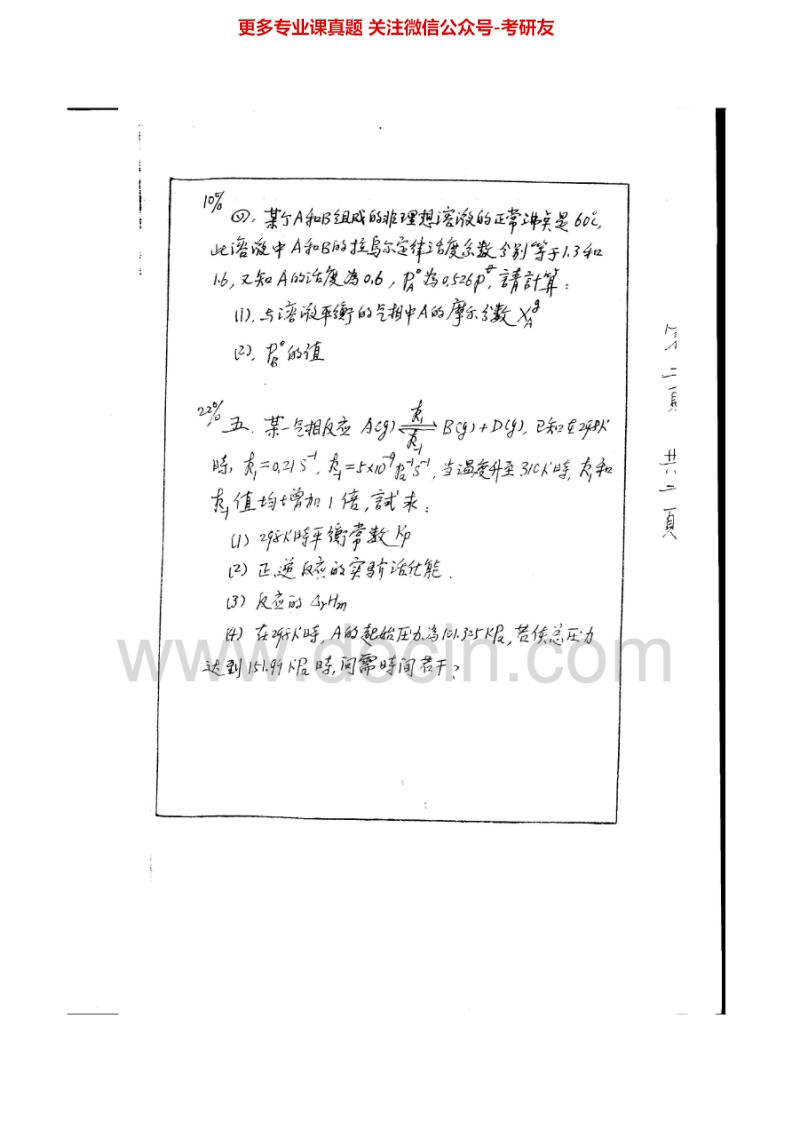 更多专业课真题 关注微信公众号-考研友
10%
四. 某个A和B组成的非理想溶液的正常沸点是60℃,
此溶液中A和B的拉乌尔定律活度系数分别等于1.3和
1.6, 又知A的活度为0.6, P_A°为0.526P^⊖, 請計算:
(1). 与溶液平衡的气相中A的摩尔分数 X_A^g
(2). P_B°的值
22%
五. 某一气相反应 A(g) ⇌ B(g)+D(g), 已知在298K
k₁
k₋₁
時, k₁=0.21 S⁻¹, k₋₁=5×10⁻⁹ Pa⁻¹S⁻¹, 当温度升至310K時, k₁和
k₋₁值均增加1倍, 試求:
(1) 298K時平衡常数 Kp
(2) 正逆反应的实验活化能.
(3) 反应的 ΔrHm
(4) 在298K時, A的起始压力為101.325KPa, 若使总压力
达到151.99KPa時, 问需時间若干?
第二頁 共二頁
www.docin.com